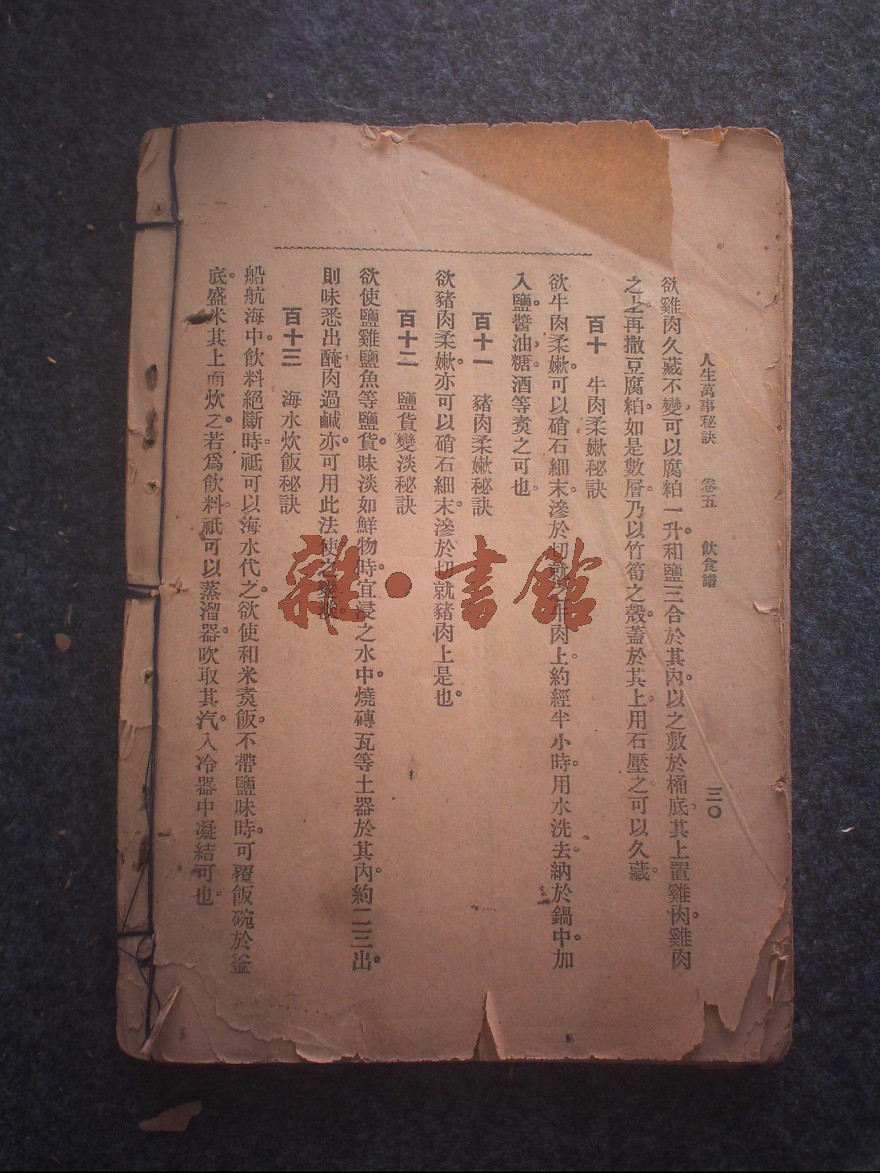 人生萬事秘訣　卷五　飲食譜　三〇
欲雞肉久藏不變，可以腐粕一升，和鹽三合於其內，以之敷於桶底，其上置雞肉。雞肉
之上，再撒豆腐粕。如是數層，乃以竹筍之殼蓋於其上，用石壓之，可以久藏。
百十　牛肉柔嫩秘訣
欲牛肉柔嫩，可以硝石細末滲於切就之牛肉上。約經半小時，用水洗去，納於鍋中，加
入鹽醬油糖酒等煑之可也。
百十一　豬肉柔嫩秘訣
欲豬肉柔嫩，亦可以硝石細末，滲於切就豬肉上是也。
百十二　鹽貨變淡秘訣
欲使鹽雞鹽魚等鹽貨味淡如鮮物時，宜浸之水中。燒磚瓦等土器於其內，約二三出。
則味悉出。醃肉過鹹，亦可用此法使之淡。
百十三　海水炊飯秘訣
船航海中，飲料絕斷時，祗可以海水代之。欲使和米煑飯，不帶鹽味時，可覆飯碗於釜
底，盛米其上而炊之。若爲飲料，祗可以蒸溜器，吹取其汽，入冷器中凝結可也。
雜·書館